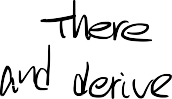 There
and derive